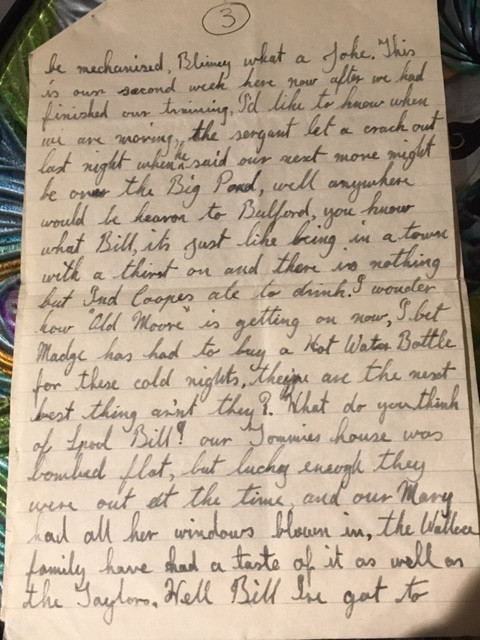 3
be mechanised, Blimey what a Joke. This
is our second week here now after we had
finished our training, I'd like to know when
we are moving, the sergant let a crack out
last night when he said our next move might
be over the Big Pond, well anywhere
would be heavon to Bulford, you know
what Bill, its just like being in a town
with a thirst on and there is nothing
but Ind Coopes ale to drink. I wonder
how "Old Moore" is getting on now, I bet
Madge has had to buy a Hot Water Bottle
for these cold nights, they're are the next
best thing as'nt they?. What do you think
of Lpool Bill? our Tommies house was
bombed flat, but lucky enough they
were out at the time, and our Mary
had all her windows blown in, the Wallace
family have had a taste of it as well as
the Taylors. Well Bill I've got to